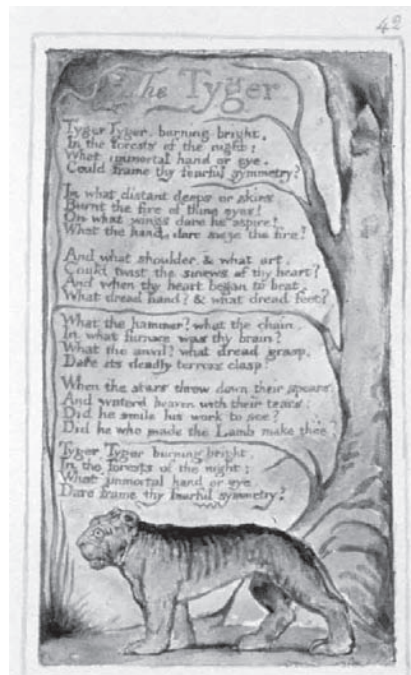 42
The Tyger
Tyger Tyger, burning bright,
In the forests of the night:
What immortal hand or eye,
Could frame thy fearful symmetry?
In what distant deeps or skies
Burnt the fire of thine eyes!
On what wings dare he aspire!
What the hand, dare sieze the fire?
And what shoulder, & what art,
Could twist the sinews of thy heart?
And when thy heart began to beat,
What dread hand? & what dread feet?
What the hammer? what the chain,
In what furnace was thy brain?
What the anvil? what dread grasp,
Dare its deadly terrors clasp!
When the stars threw down their spears
And water'd heaven with their tears:
Did he smile his work to see?
Did he who made the Lamb make thee?
Tyger Tyger burning bright,
In the forests of the night:
What immortal hand or eye,
Dare frame thy fearful symmetry?